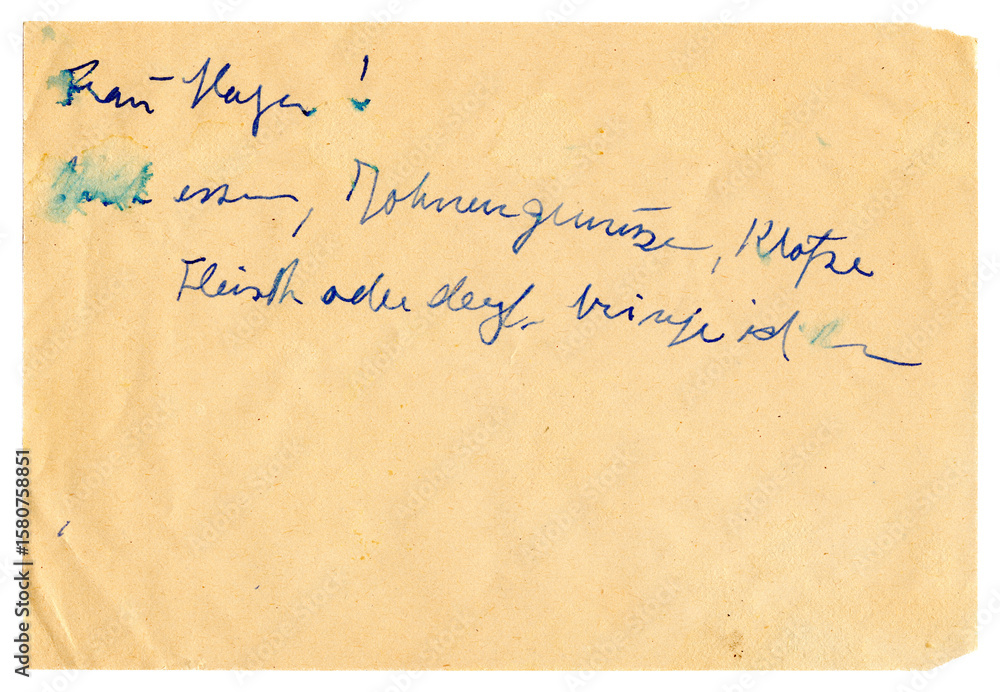 Frau Hager!
essen, Mohnengemüse, Klopse
Fleisch oder dergl. bringe ich
Adobe Stock | #1580758851